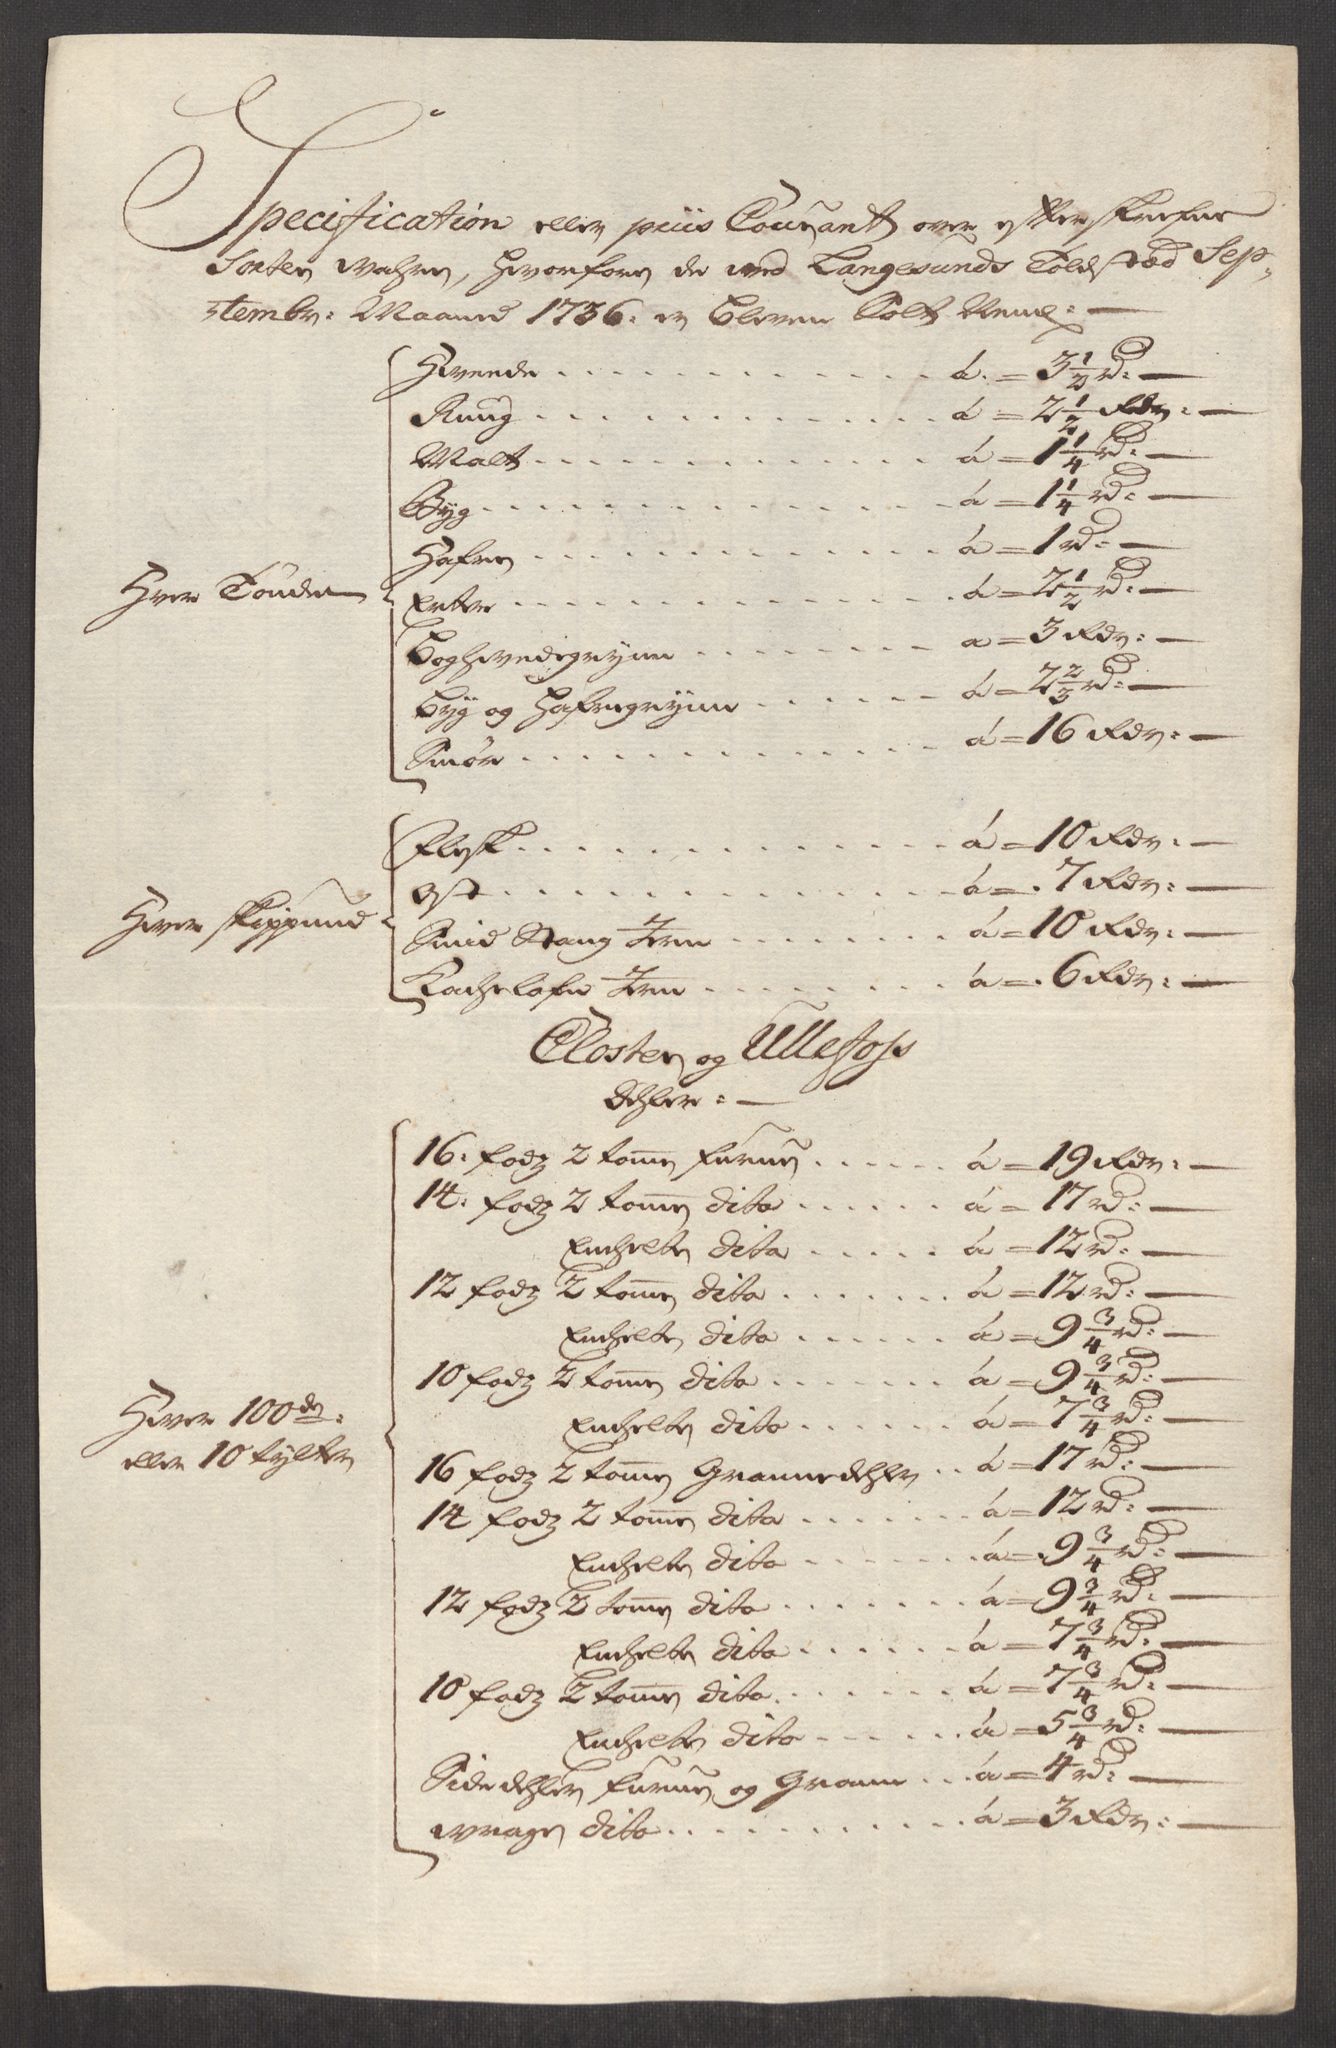 Specification eller priis Courant over efterskrefne
Sorter wahrer, hvorfore de ved Langesunds Toldsted Sep-
tembr: Maaned 1736. er bleven Solt Neml: —
Hver Tønde
Hveede . . . . á = 3 1/2 rd: —
Ruug . . . . á = 2 1/2 Rdr: —
Malt . . . . á = 1 1/4 rd: —
Byg . . . . á = 1 1/4 rd: —
Hafre . . . . á = 1 rd: —
Erter . . . . á = 2 1/2 rd: —
Boghvedegryn . . . . a = 3 Rdr: —
Byg og Hafregryn . . . . á = 2 2/3 rd: —
Smør . . . . á = 16 Rdr: —
Hver skippund
Flesk . . . . á = 10 Rdr: —
Ost . . . . á = 7 Rdr: —
Smid Stang Jern . . . . á = 10 Rdr: —
Kachelofn Jern . . . . á = 6 Rdr: —
Closter og Ullefoss
Dehler: —
Hver 100de:
eller 10 tylter
16. fodz 2 tomme furuer . . . . á = 19 Rdr: —
14. fodz 2 tomme dito . . . . á = 17 rd: —
Enchelte dito . . . . á = 12 rd: —
12 fodz 2 tomme dito . . . . á = 12 rd: —
Enchelte dito . . . . á = 9 3/4 rd: —
10 fodz 2 tomme dito . . . . á = 9 3/4 rd: —
Enchelte dito . . . . á = 7 3/4 rd: —
16 fodz 2 tomme Grannedehler . . á = 17 rd: —
14 fodz 2 tomme dito . . . . á = 12 rd: —
Enchelte dito . . . . á = 9 3/4 rd: —
12 fodz 2 tomme dito . . . . á = 9 3/4 rd: —
Enchelte dito . . . . á = 7 3/4 rd: —
10 fodz 2 tomme dito . . . . á = 7 3/4 rd: —
Enchelte dito . . . . á = 5 3/4 rd: —
Sidedehler furuer og Grann . . . á = 4 rd: —
wrager dito . . . . á = 3 Rdr: —